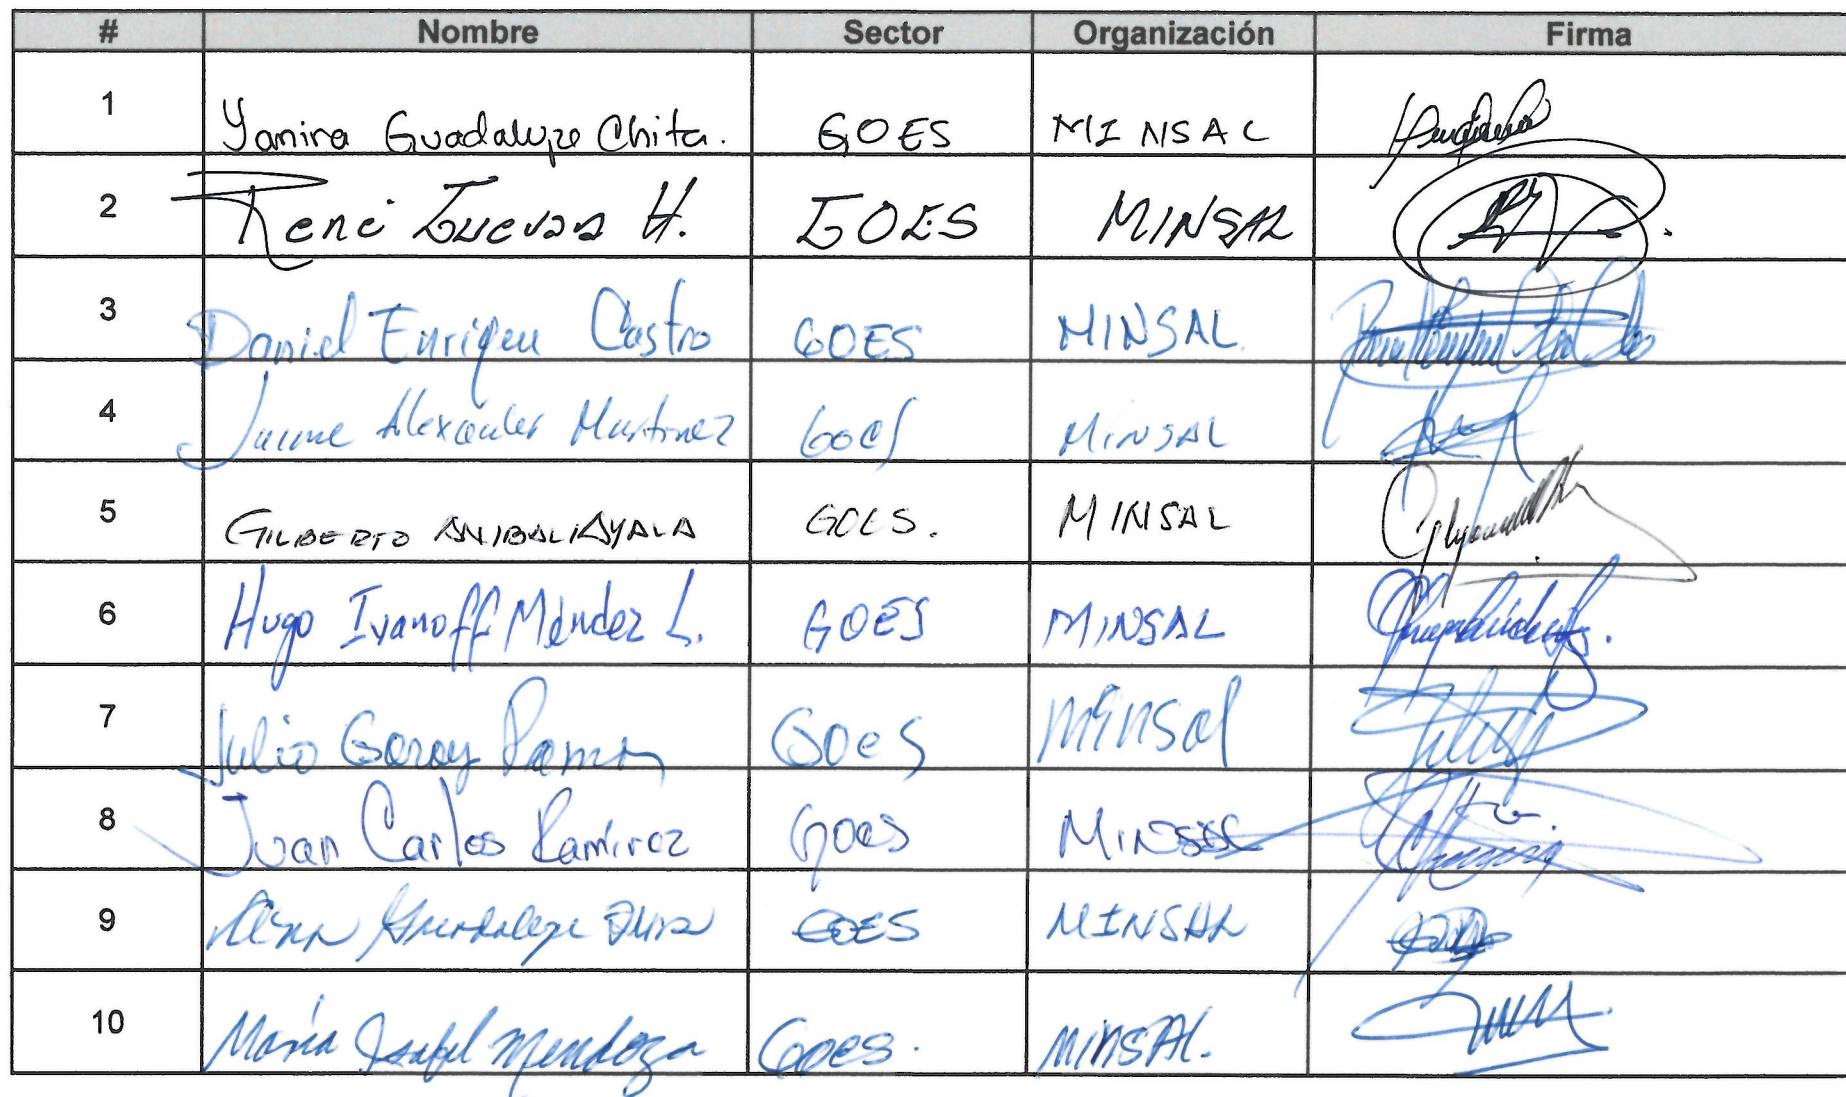 # Nombre Sector Organización Firma
1 Yanira Guadalupe Chita. GOES MINSAL
2 René Guevara H. GOES MINSAL
3 Daniel Enrique Castro GOES MINSAL
4 Jaime Alexander Martinez Goes MINSAL
5 GILBERTO ANIBAL AYALA GOES. MINSAL
6 Hugo Ivanoff Méndez L. GOES MINSAL
7 Julio Garay Ramos Goes Minsal
8 Juan Carlos Ramírez Goes MINSAL
9 Guadalupe GOES MINSAL
10 María Isabel Mendoza Goes. MINSAL.